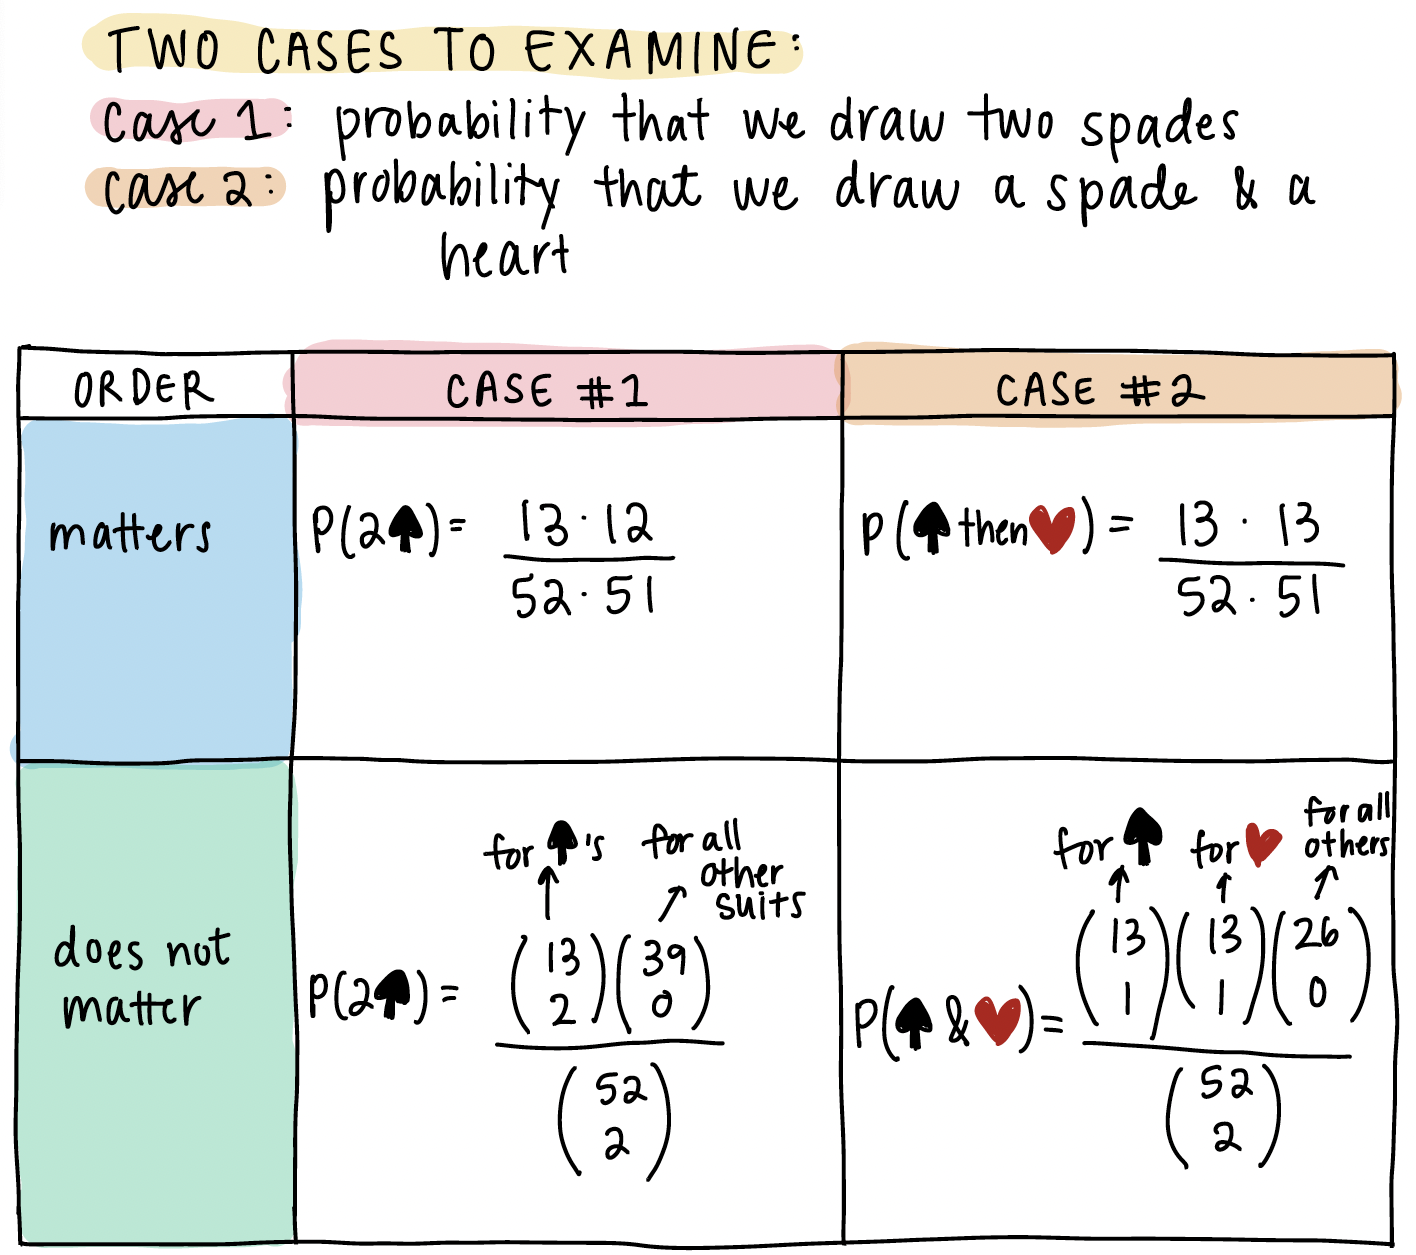 TWO CASES TO EXAMINE:
case 1: probability that we draw two spades
case 2: probability that we draw a spade & a
heart
ORDER
CASE #1
CASE #2
matters
P(2♠) = 13 · 12
52 · 51
P(♠ then ♥) = 13 · 13
52 · 51
does not
matter
for ♠'s
for all
other
suits
P(2♠) = (13 2)(39 0)
(52 2)
for ♠
for ♥
for all
others
P(♠ & ♥) = (13 1)(13 1)(26 0)
(52 2)